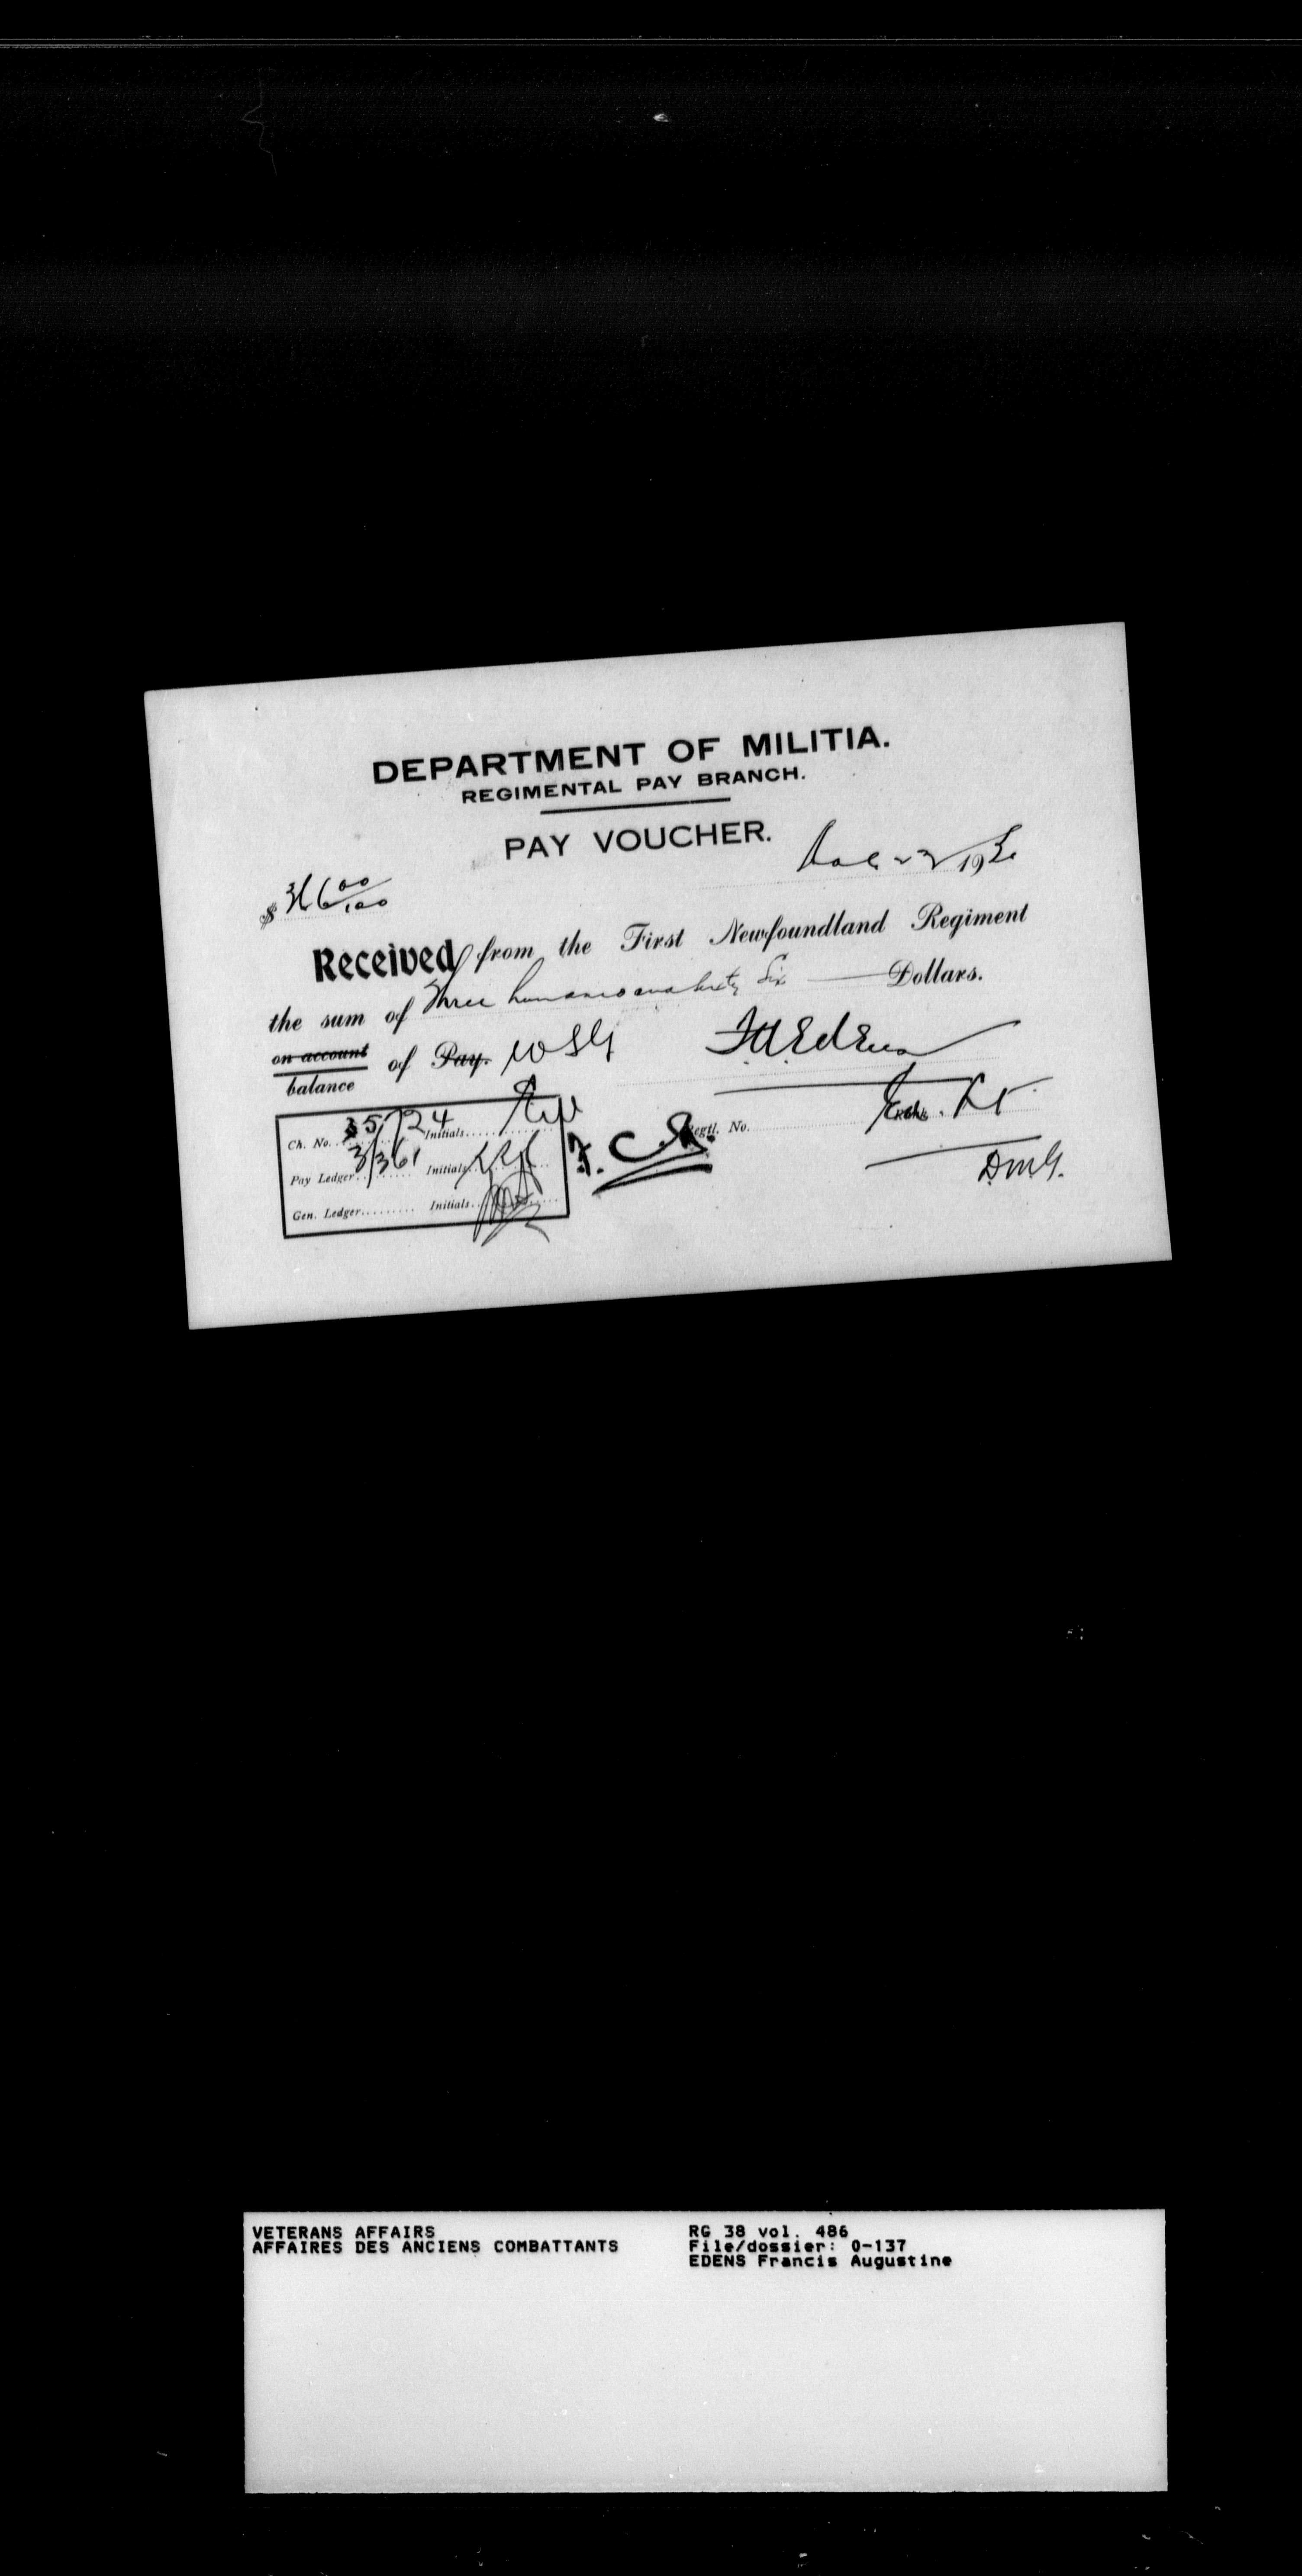 DEPARTMENT OF MILITIA.
REGIMENTAL PAY BRANCH.
PAY VOUCHER.
23 19
$ 366 00/100
Received from the First Newfoundland Regiment
the sum of Three hundred and sixty Six Dollars.
on account of Pay. WSG
balance
F A Edens
Ch. No. 35724 Initials
Regtl. No.
Pay Ledger 3/361 Initials
Gen. Ledger Initials
VETERANS AFFAIRS
AFFAIRES DES ANCIENS COMBATTANTS
RG 38 vol. 486
File/dossier: O-137
EDENS Francis Augustine